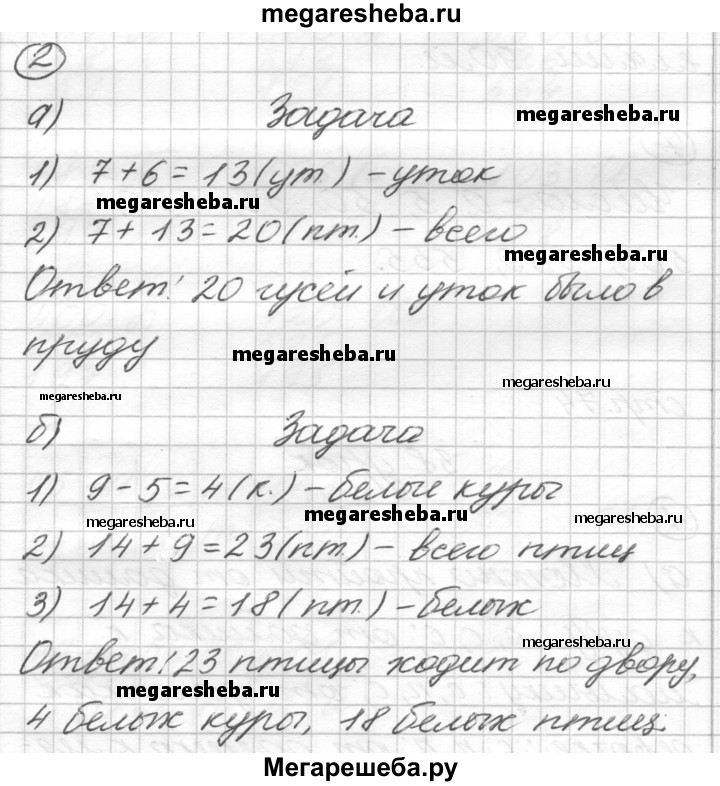 megaresheba.ru
2
а) Задача megaresheba.ru
1) 7 + 6 = 13 (ут.) – уток
megaresheba.ru
2) 7 + 13 = 20 (пт.) – всего
megaresheba.ru
Ответ: 20 гусей и уток было в
пруду megaresheba.ru
megaresheba.ru
megaresheba.ru
б) Задача
1) 9 – 5 = 4 (к.) – белые куры
megaresheba.ru megaresheba.ru megaresheba.ru
2) 14 + 9 = 23 (пт.) – всего птиц
3) 14 + 4 = 18 (пт.) – белых
megaresheba.ru
Ответ: 23 птицы ходит по двору,
megaresheba.ru
4 белых куры, 18 белых птиц.
Мегарешеба.ру